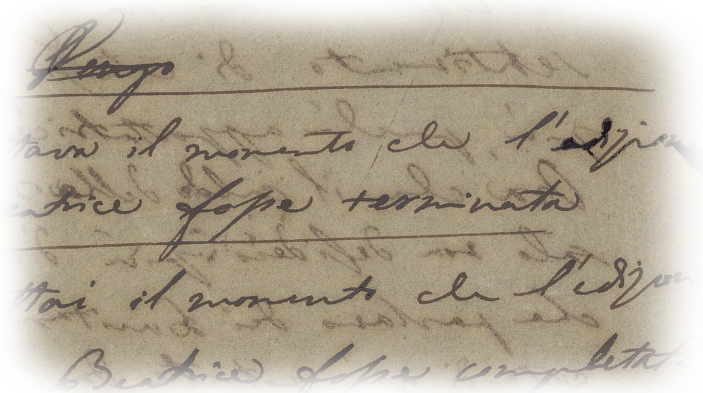 Tempo
ttava il momento che l'edizione
eatrice fosse terminata
ttai il momento che l'edizion
Beatrice fosse completata